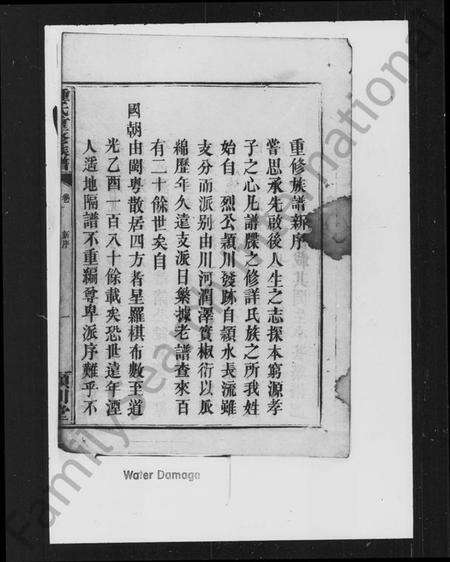 重修族譜新序
嘗思承先啟後人生之志探本窮源孝
子之心凡譜牒之修詳氏族之所我姓
始自 烈公潁川發跡自潁水長流雖
支分而派別由川河潤澤實椒衍以瓜
綿歷年久遠支派日繁據老譜查來百
有二十餘世矣自
國朝由閩粵散居四方者星羅棋布數至道
光乙酉一百八十餘載矣恐世遠年湮
人遙地隔譜不重編尊卑派序難乎不
重修族譜
卷一 新序
潁川堂
Water Damage
FamilySearch International